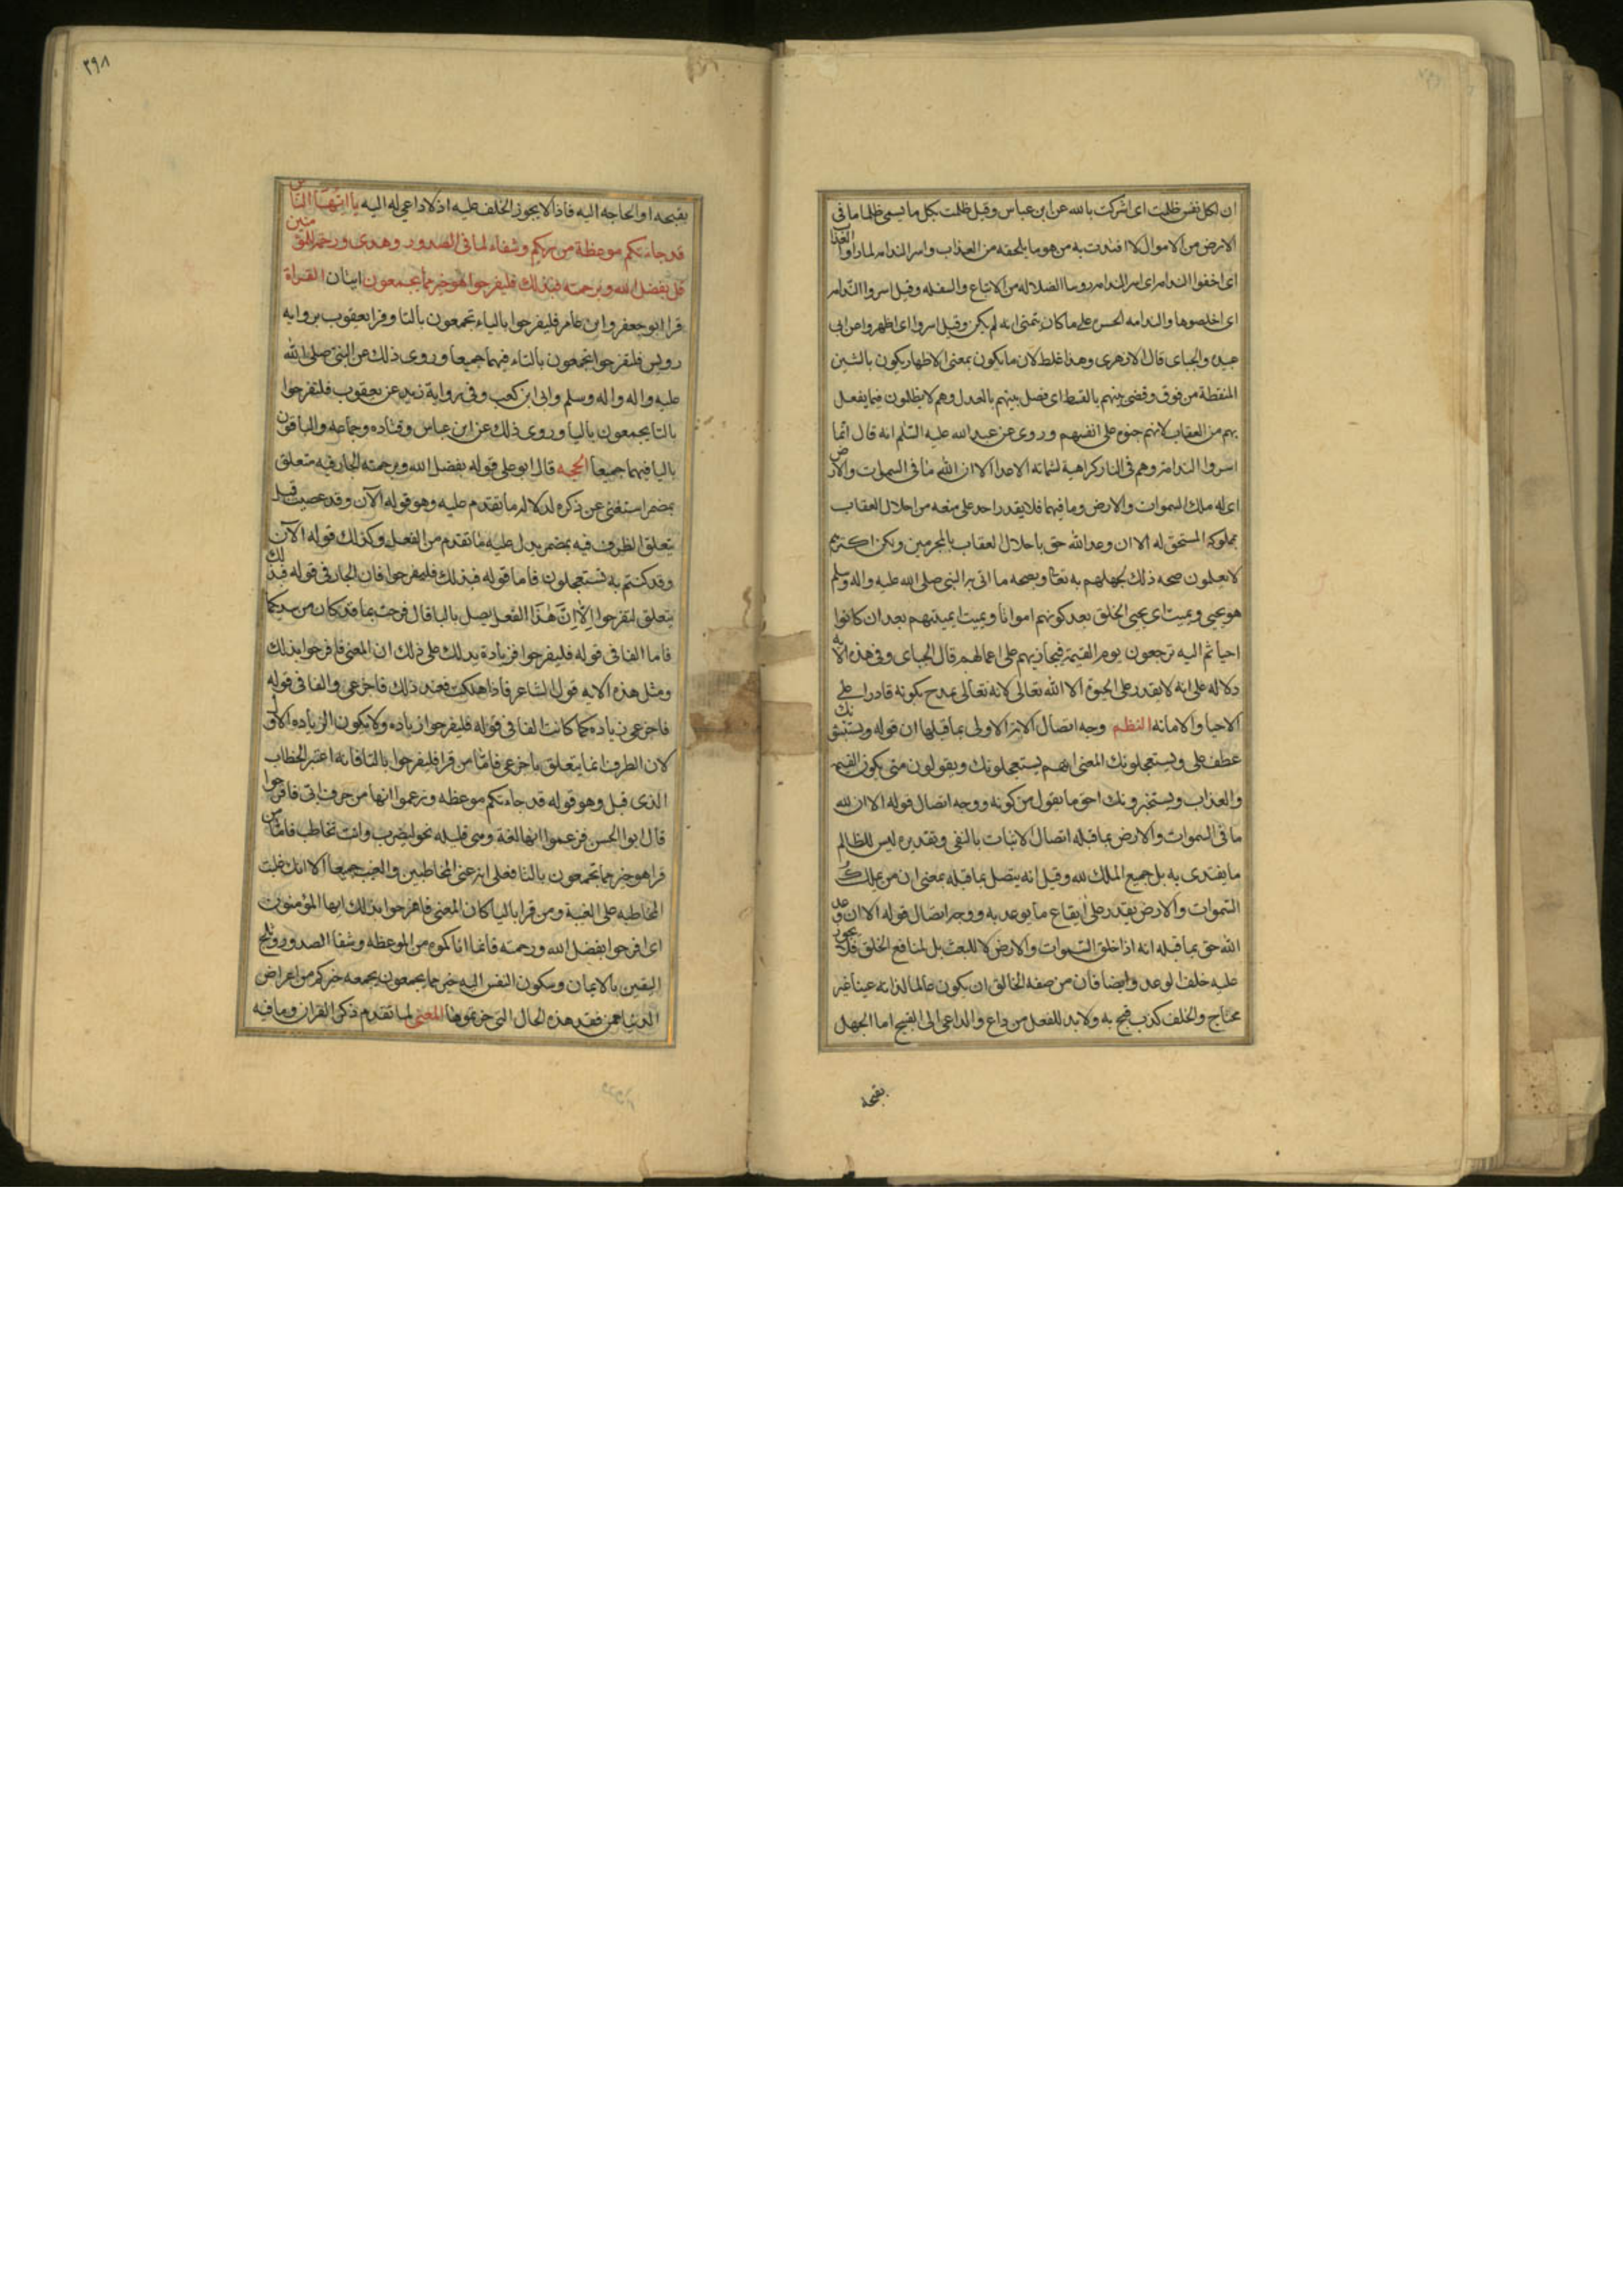 ان لكل نفس ظلمت اى اشركت بالله عن ابن عباس وقيل ظلمت بكل ما يسمى ظلما ما فى
الارض من الاموال لا افتدت به من هو ما يلحقه من العذاب واسروا الندامه لما راوا العذاب
اى اخفوا الندامه اى اسر الندامه روسا الضلاله من الاتباع والسفله وقيل اسروا الندامه
اى اخلصوها والندامه الحسره على ما كان يتمنى انه لم يكن وقيل اسروا اى اظهروا عن ابى
عبيده والجباى قال الازهرى وهذا غلط لان ما يكون بمعنى الاظهار يكون بالشين
المنقطة من فوق وقضى بينهم بالقسط اى فصل بينهم بالعدل وهم لا يظلمون فيما يفعل
بهم من العقاب لانهم جنوه على انفسهم وروى عن عبد الله عليه السلم انه قال انما
اسروا الندامة وهم فى النار كراهية لشماته الاعدا الا ان لله ما فى السموات والارض
اى له ملك السموات والارض وما فيهما فلا يقدر احد على منعه من احلال العقاب
بمملوكه المستحق له الا ان وعد الله حق باحلال العقاب بالمجرمين ولكن اكثرهم
لا يعلمون صحه ذلك لجهلهم به تعالى وبصحه ما اتى به النبى صلى الله عليه واله وسلم
هو يحيى ويميت اى يحيى الخلق بعد كونهم امواتا ويميت اى يميتهم بعد ان كانوا
احيا ثم اليه ترجعون يوم القيمة فيجازيهم على اعمالهم قال الجباى وفى هذه الايه
دلاله على انه لا يقدر على الحيوة الا الله تعالى لانه تعالى يمدح بكونه قادرا على
الاحيا والاماته النظم وجه اتصال الاية الاولى بما قبلها ان قوله ويستنبئونك
عطف على ويستعجلونك المعنى انهم يستعجلونك ويقولون متى يكون القيمه
والعذاب ويستخبرونك احق ما يقول من كونه ووجه اتصال قوله الا ان لله
ما فى السموات والارض بما قبله اتصال الاثبات بالنفى وتقديره ليس للظالم
ما يفتدى به بل جميع الملك لله وقيل انه يتصل بما قبله بمعنى ان من يملك
السموات والارض يقدر على ايقاع ما يوعد به ووجه اتصال قوله الا ان وعد
الله حق بما قبله انه اذا خلق السموات والارض لا للبعث بل لمنافع الخلق فلا يجوز
عليه خلف الوعد وايضا فان من صفه الخالق ان يكون عالما لذاته غنيا غير
محتاج والخلف كذب قبح به ولا بد للفعل من داع والداعى الى القبيح اما الجهل
بقبحه
٢٩٨
بقبحه او الحاجه اليه فاذا لا يجوز الخلف عليه اذ لا داعى له اليه يا ايها الناس
قد جاءتكم موعظة من ربكم وشفاء لما فى الصدور وهدى ورحمة للمؤمنين
قل بفضل الله وبرحمته فبذلك فليفرحوا هو خير مما يجمعون ايتان القراة
قرا ابو جعفر وابن عامر فليفرحوا بالياء تجمعون بالتا وقرا يعقوب برواية
رويس فلتفرحوا تجمعون بالتاء فيهما جميعا وروى ذلك عن النبى صلى الله
عليه واله واله وسلم وابى ابن كعب وفى رواية زيد عن يعقوب فلتفرحوا
بالتا يجمعون باليا وروى ذلك عن ابن عباس وقتاده وجماعه والباقون
باليا فيهما جميعا الحجه قال ابو على قوله بفضل الله وبرحمته الجار فيه متعلق
بمضمر استغنى عن ذكره لدلاله ما تقدم عليه وهو قوله الآن وقد عصيت قبل
يتعلق الظرف فيه بمضمر يدل عليه ما تقدم من الفعل وكذلك قوله الآن
وقد كنتم به تستعجلون فاما قوله فبذلك فليفرحوا فان الجار فى قوله فبذلك
يتعلق لتفرحوا الا ان هذا الفعل يصل بالبا قال فرحت بما قد كان من سيدكما
فاما الفا فى قوله فليفرحوا فزيادة يدلك على ذلك ان المعنى فافرحوا بذلك
ومثل هذه الايه قول الشاعر فاذا هلكت فعند ذلك فاجزعى والفا فى قوله
فاجزعى زياده كما كانت الفا فى قوله فليفرحوا زياده ولا يكون الزياده الاولى
لان الظرف انما يتعلق باجزعى فاما من قرا فليفرحوا بالتا فانه اعتبر الخطاب
الذى قبل وهو قوله قد جاءتكم موعظه وزعموا انها من حرف ابى فافرحوا
قال ابو الحسن فزعموا انها لغة وهى قليله نحو ليضرب وانت تخاطب فاما من
قرا هو خير مما تجمعون بالتا فعلى انه عنى المخاطبين والغيب جميعا الا انك غلبت
المخاطبه على الغيبة ومن قرا باليا كان المعنى فافرحوا بذلك ايها المؤمنون
اى افرحوا بفضل الله ورحمته فانما اتاكموه من الموعظه وشفا الصدور وثلج
اليقين بالايمان وسكون النفس اليه خير مما يجمعون يجمعه غيركم من اعراض
الدنيا ممن فقد هذه الحال التى حزتموها المعنى لما تقدم ذكر القران وما فيه